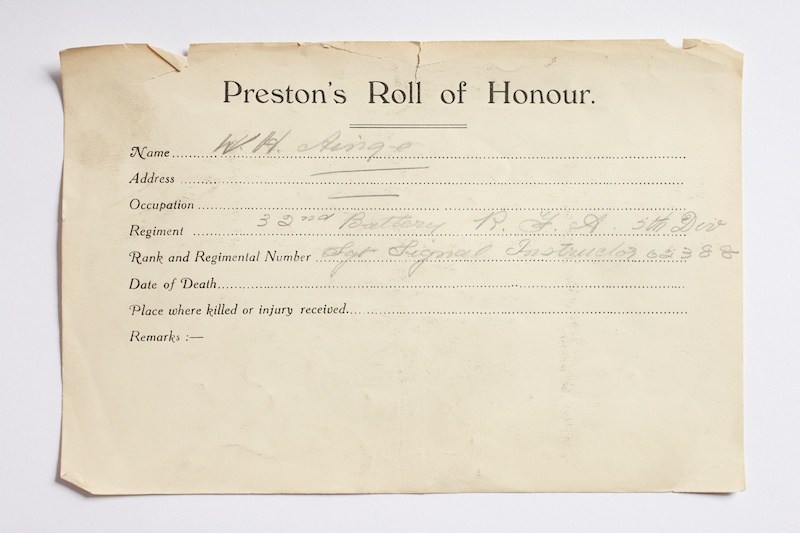 Preston's Roll of Honour.
Name W. H. Ainge
Address
Occupation
Regiment 32nd Battery R. F. A. 5th Div
Rank and Regimental Number Sgt Signal Instructor 62388
Date of Death
Place where killed or injury received
Remarks :—